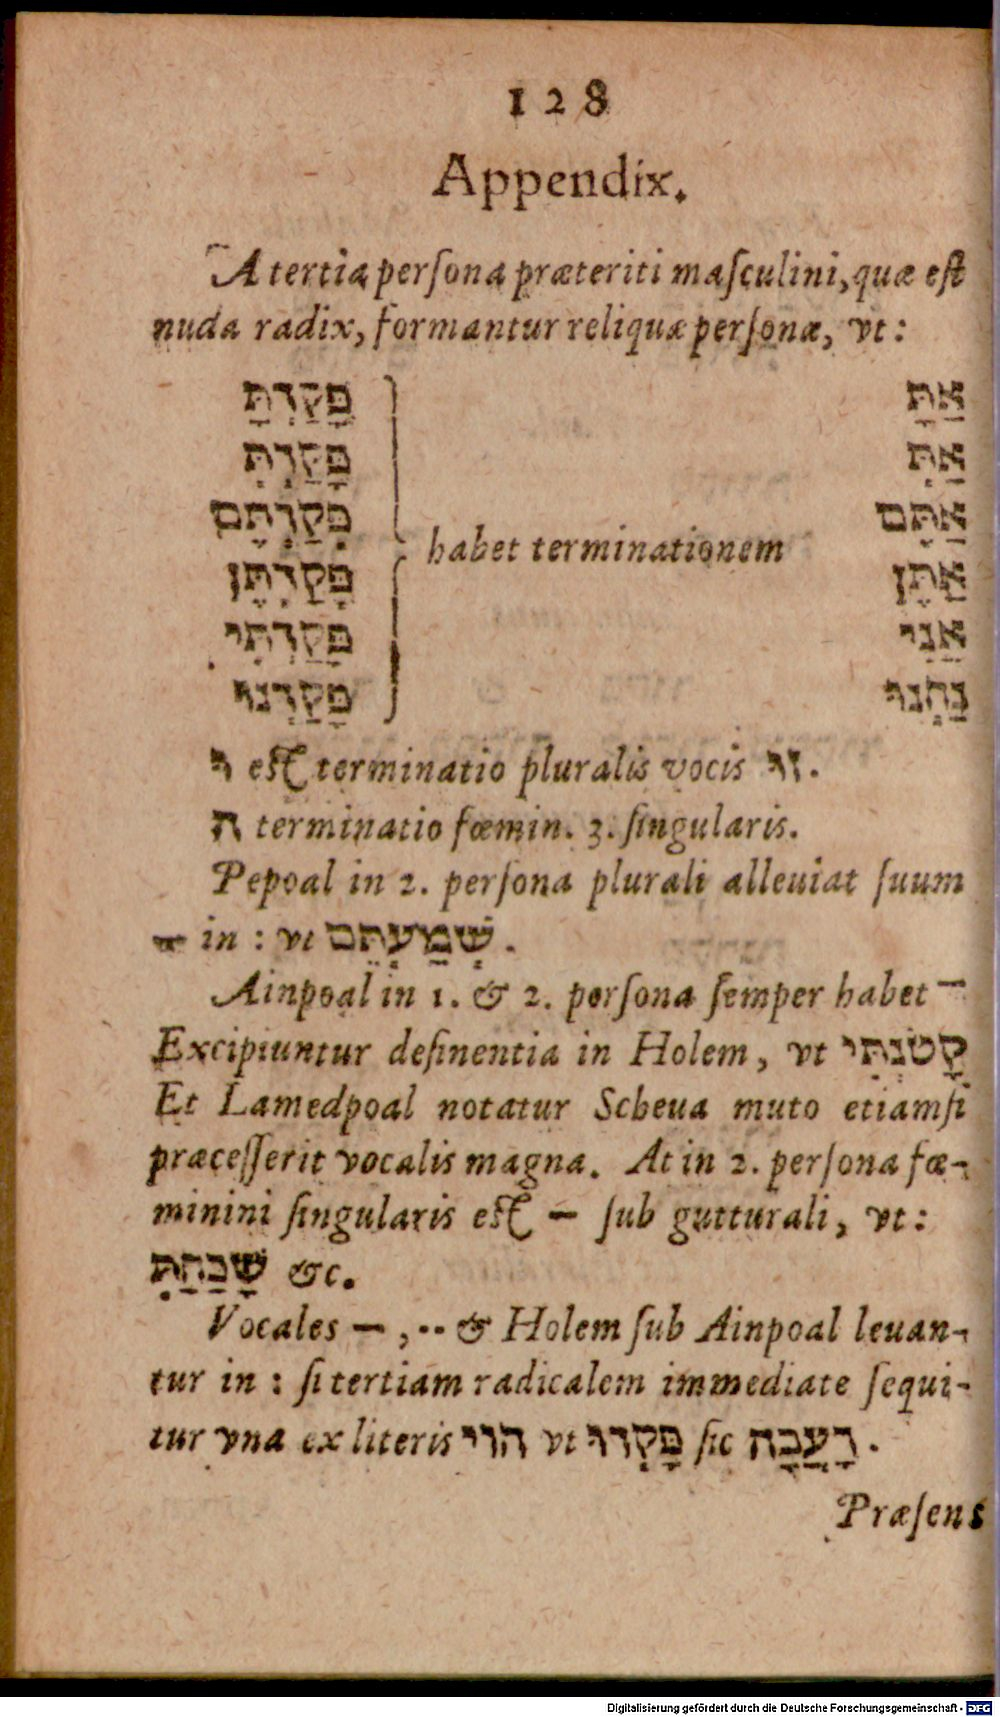 128
Appendix.
A tertia persona præteriti masculini, quæ est
nuda radix, formantur reliquæ personæ, vt:
פָּקַדְתָּ אַתָּ
פָּקַדְתְּ אַתְּ
פְּקַדְתֶּם habet terminationem אַתֶּם
פְּקַדְתֶּן אַתֶּן
פָּקַדְתִּי אֲנִי
פָּקַדְנוּ נַחְנוּ
וּ est terminatio pluralis vocis זוּ.
ה terminatio fœmin. 3. singularis.
Pepoal in 2. persona plurali alleuiat suum
ָ in : vt שְׁמַעְתֶּם.
Ainpoal in 1. & 2. persona semper habet –
Excipiuntur desinentia in Holem, vt קָטֹנְתִּי
Et Lamedpoal notatur Scheua muto etiamsi
præcesserit vocalis magna. At in 2. persona fœ-
minini singularis est – sub gutturali, vt:
שָׁכַחַתְּ &c.
Vocales – , ·· & Holem sub Ainpoal leuan-
tur in : si tertiam radicalem immediate sequi-
tur vna ex literis הוי vt פָּקְדוּ sic רָעֲבָה.
Præsens
Digitalisierung gefördert durch die Deutsche Forschungsgemeinschaft - DFG